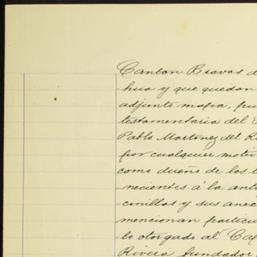 Canton Bravos d
hua y que quedan
adjunto mapa, fue
testamentaria del S
Pablo Martinez del R
por cualquier motiv
como dueño de los t
necientes á la ante
cinillos y sus anex
mencionan particu
lo otorgado al Cap
Rivera fundador